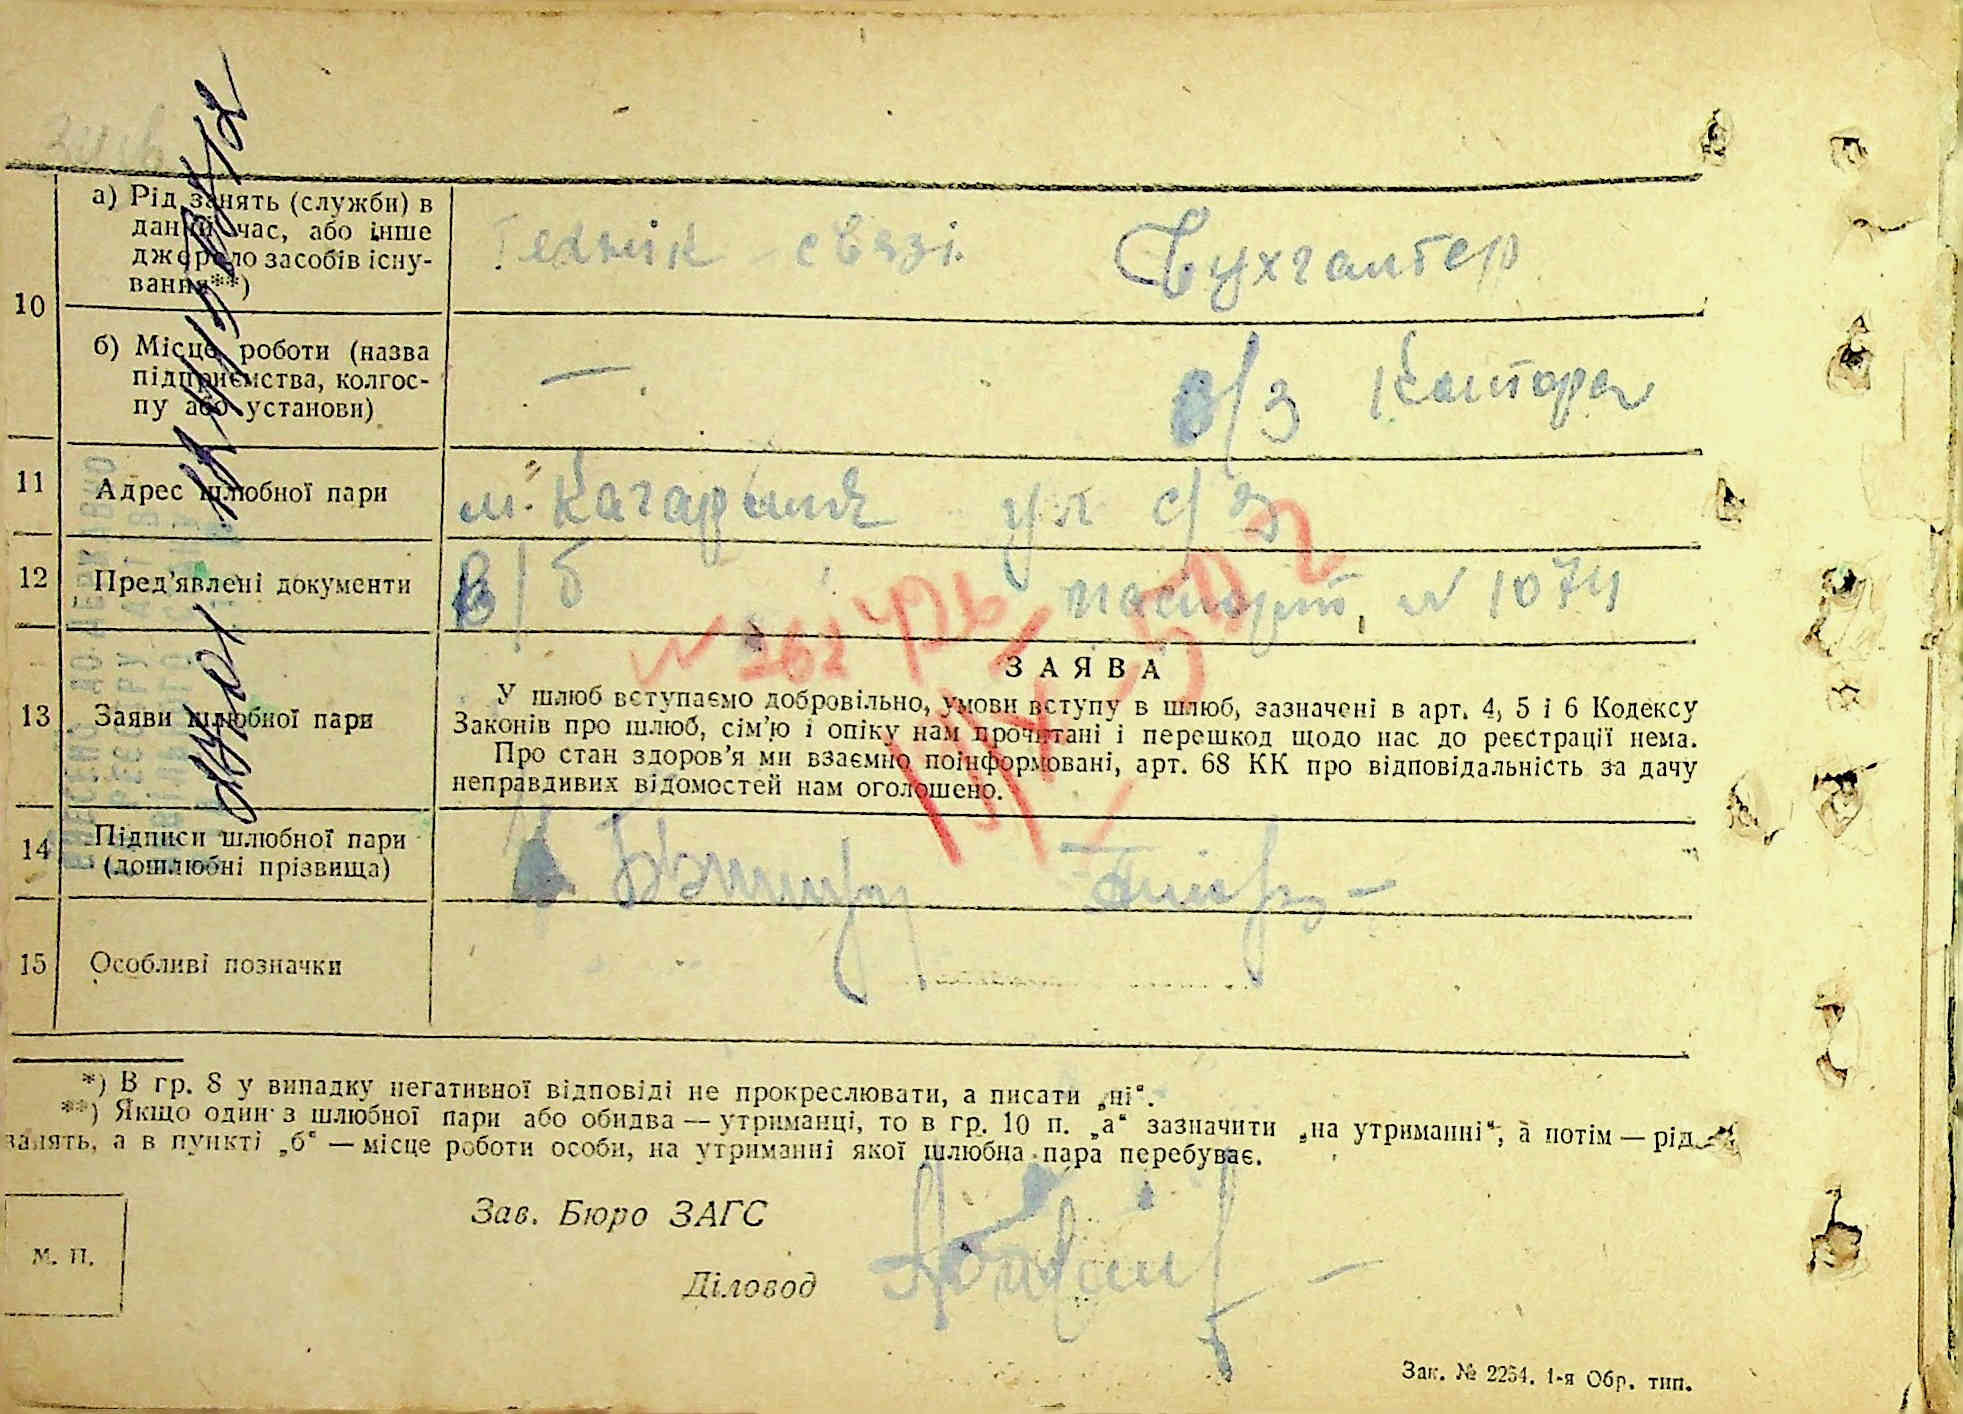 10
а) Рід занять (служби) в
даний час, або інше
джерело засобів існу-
вання**)
Технік - связі. Бухгалтер
б) Місце роботи (назва
підприємства, колгос-
пу або установи)
— . в/з Контора
11 Адрес шлюбної пари
м. Кагарлик ул с/з
12 Пред'явлені документи
в/б паспорт, № 1074
13 Заяви шлюбної пари
ЗАЯВА
У шлюб вступаємо добровільно, умови вступу в шлюб, зазначені в арт. 4, 5 і 6 Кодексу
Законів про шлюб, сім'ю і опіку нам прочитані і перешкод щодо нас до реєстрації нема.
Про стан здоров'я ми взаємно поінформовані, арт. 68 КК про відповідальність за дачу
неправдивих відомостей нам оголошено.
14 Підписи шлюбної пари
(дошлюбні прізвища)
15 Особливі позначки
*) В гр. 8 у випадку негативної відповіді не прокреслювати, а писати „ні“.
**) Якщо один з шлюбної пари або обидва — утриманці, то в гр. 10 п. „а“ зазначити „на утриманні“, а потім — рід
занять, а в пункті „б“ — місце роботи особи, на утриманні якої шлюбна пара перебуває.
Зав. Бюро ЗАГС
М. П.
Діловод
Зак. № 2254. 1-я Обр. тип.